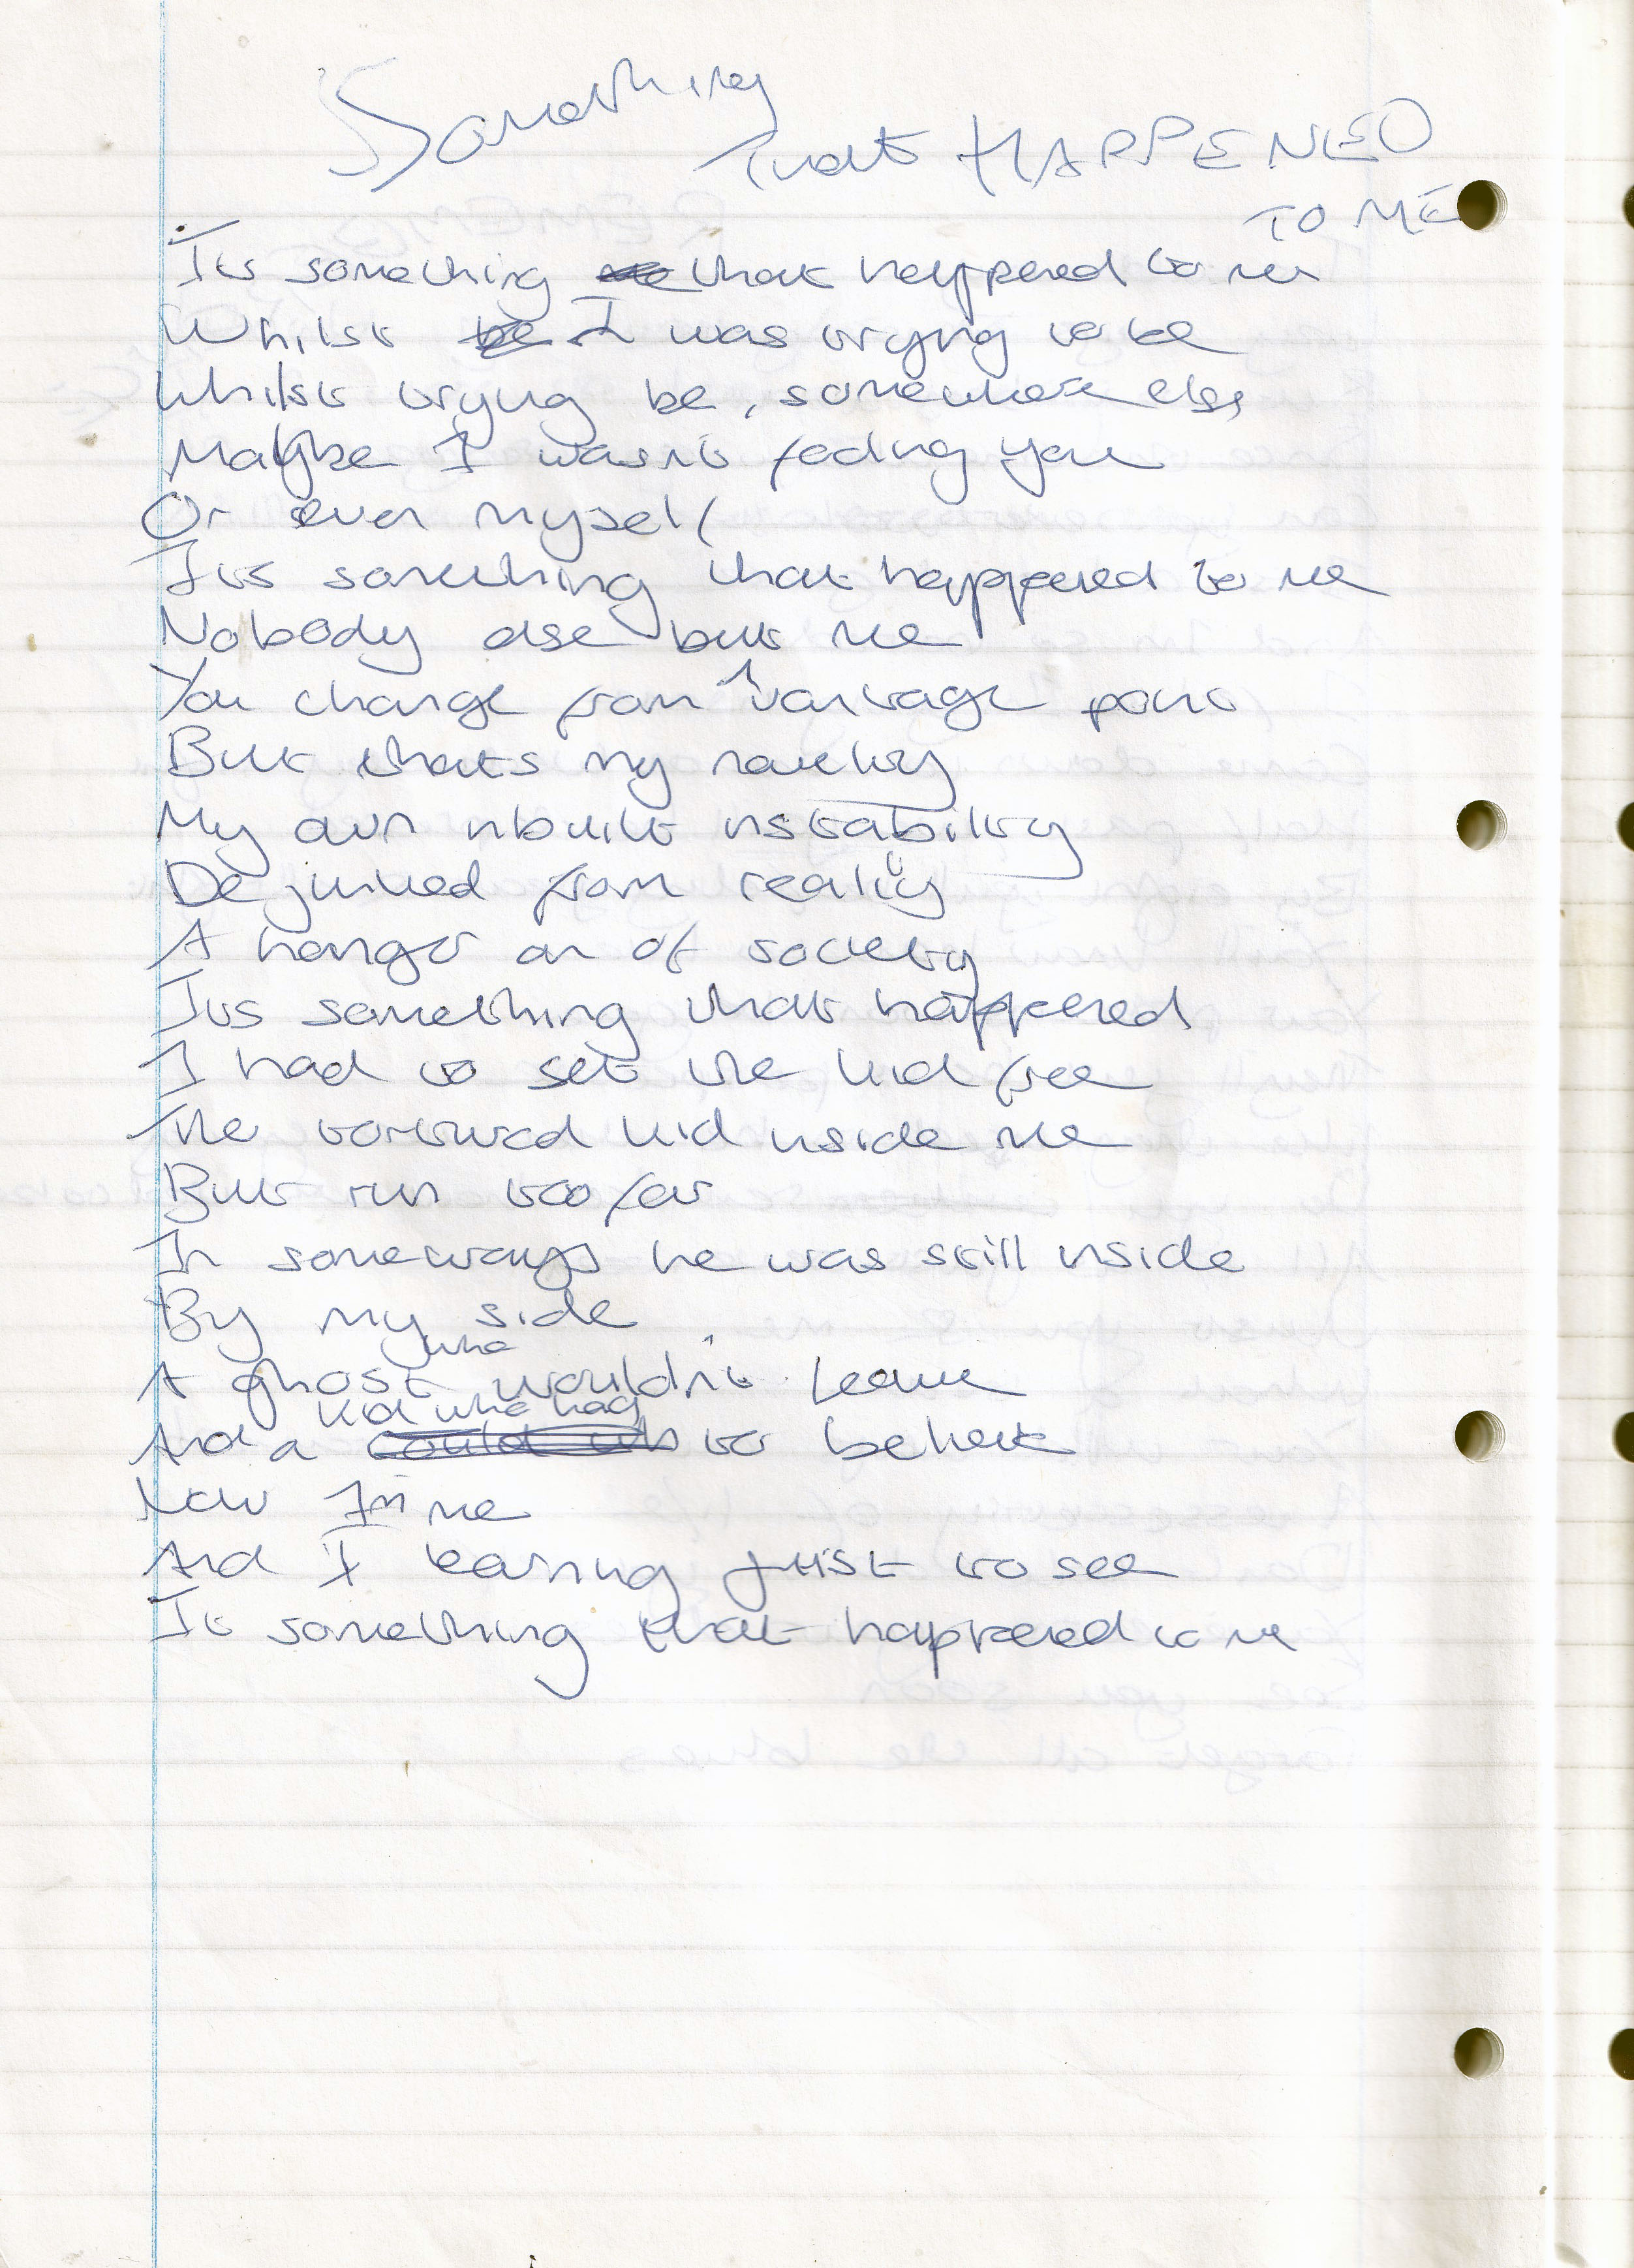 Something
That HAPPENED
TO ME
Its something that happened to me
Whilst be I was trying to be
Whilst trying be, somewhere else
Maybe I wasn't fooling you
Or even myself
Its something that happened to me
Nobody else but me
You change from vantage point
But thats my
My own inbuilt instability
De from reality
A hanger on of society
Its something that happened
I had to set the kid free
The tortured kid inside me
But run too far
In someways he was still inside
By my side
A ghost who wouldn't leave
And a kid who had to
Now I'm me
And I leaving just to see
It something that happened to me